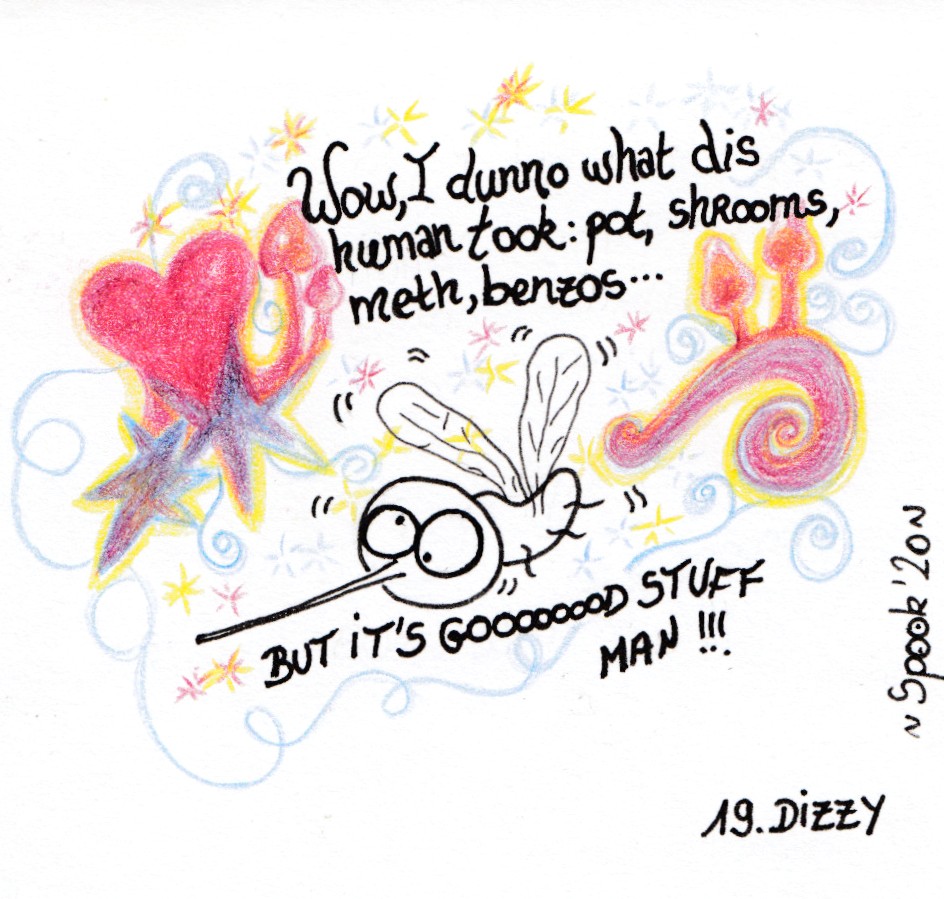 Wow, I dunno what dis
human took: pot, shrooms,
meth, benzos...
BUT iT'S GOOOOOOOD STUFF
MAN !!!
~ Spook '20 ~
19. DiZZY